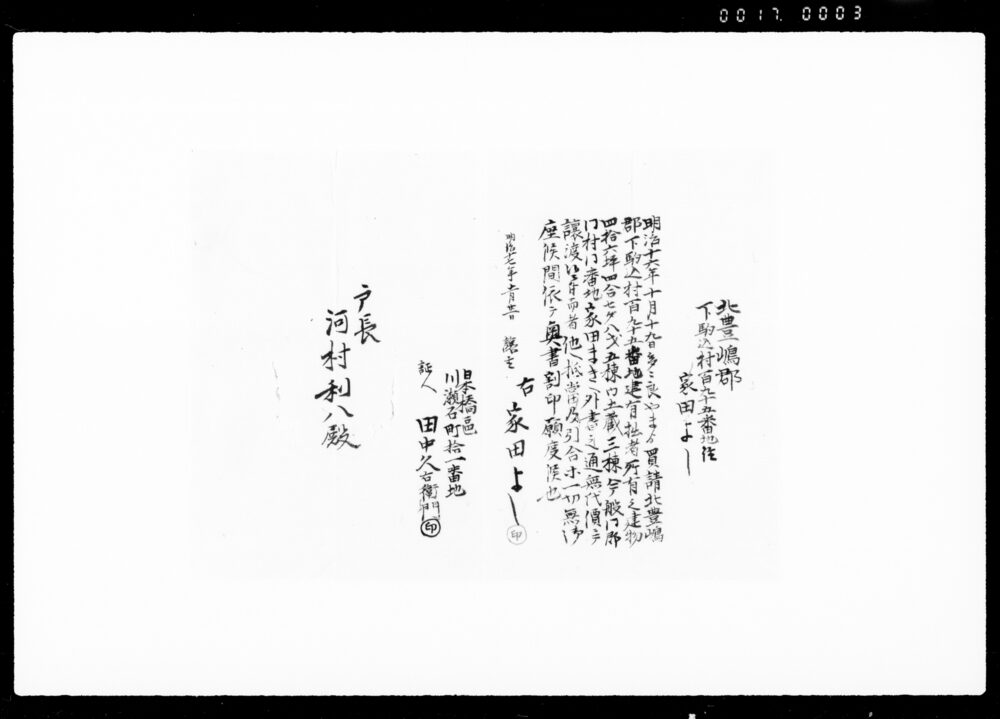 0017 0003
北豊嶋郡
下駒込村百九十五番地住
家田よし
明治十六年十月十九日多々良やまゟ買請北豊嶋
郡下駒込村百九十五番地建有拙者所有之建物
四拾六坪四合七夕八才五棟内土蔵三棟今般同郡
同村同番地家田まさヘ外書之通無代價ニテ
譲渡 而者他ヘ抵當及引合等一切無御
座候間依テ奥書割印願度候也
明治十七年 月 譲主
右 家田よし 印
日本橋區
川瀬石町拾一番地
証人 田中久右衛門 印
戸長
河村利八殿